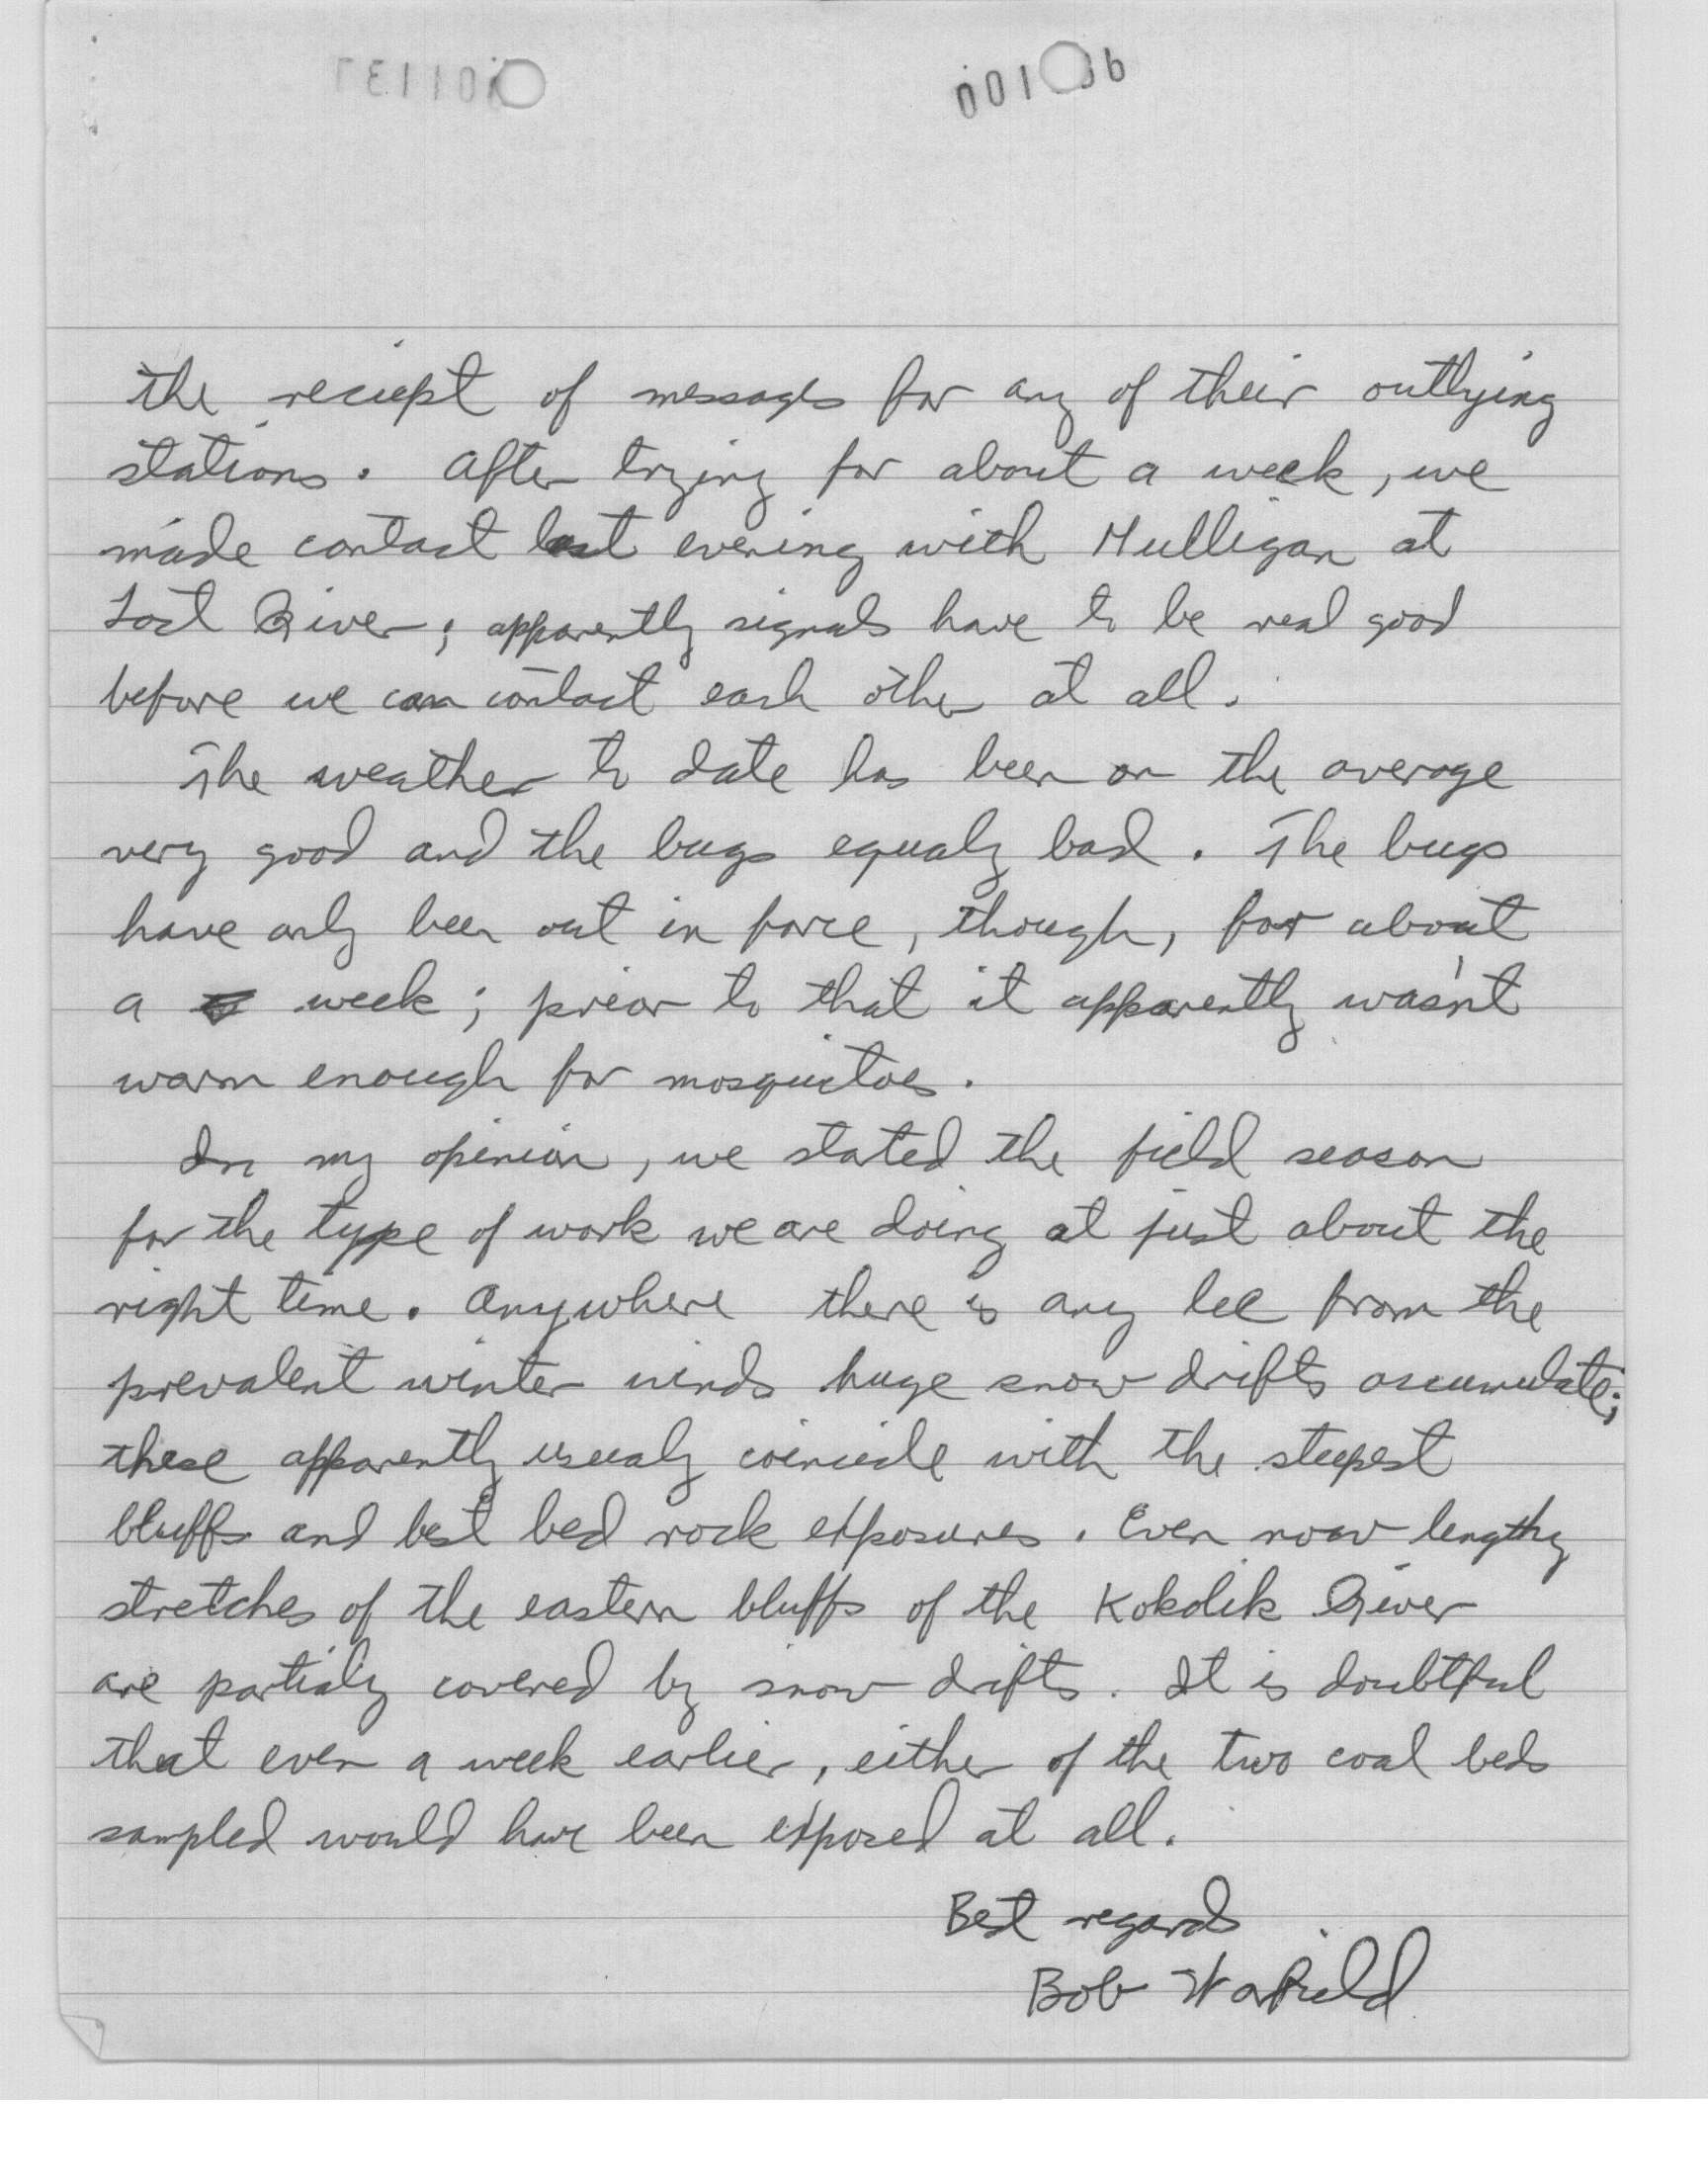 the reciept of messages for any of their outlying
stations. After trying for about a week, we
made contact last evening with Mulligan at
Lost River; apparently signals have to be real good
before we can contact each other at all.
The weather to date has been on the average
very good and the bugs equaly bad. The bugs
have only been out in force, though, for about
a week; prior to that it apparently wasn't
warm enough for mosquitoes.
In my opinion, we stated the field season
for the type of work we are doing at just about the
right time. Anywhere there is any lee from the
prevalent winter winds huge snow drifts accumulate;
these apparently usualy coincide with the steepest
bluffs and best bed rock exposures. Even now lengthy
stretches of the eastern bluffs of the Kokolik River
are partialy covered by snow drifts. It is doubtful
that even a week earlier, either of the two coal beds
sampled would have been exposed at all.
Best regards
Bob Warfield